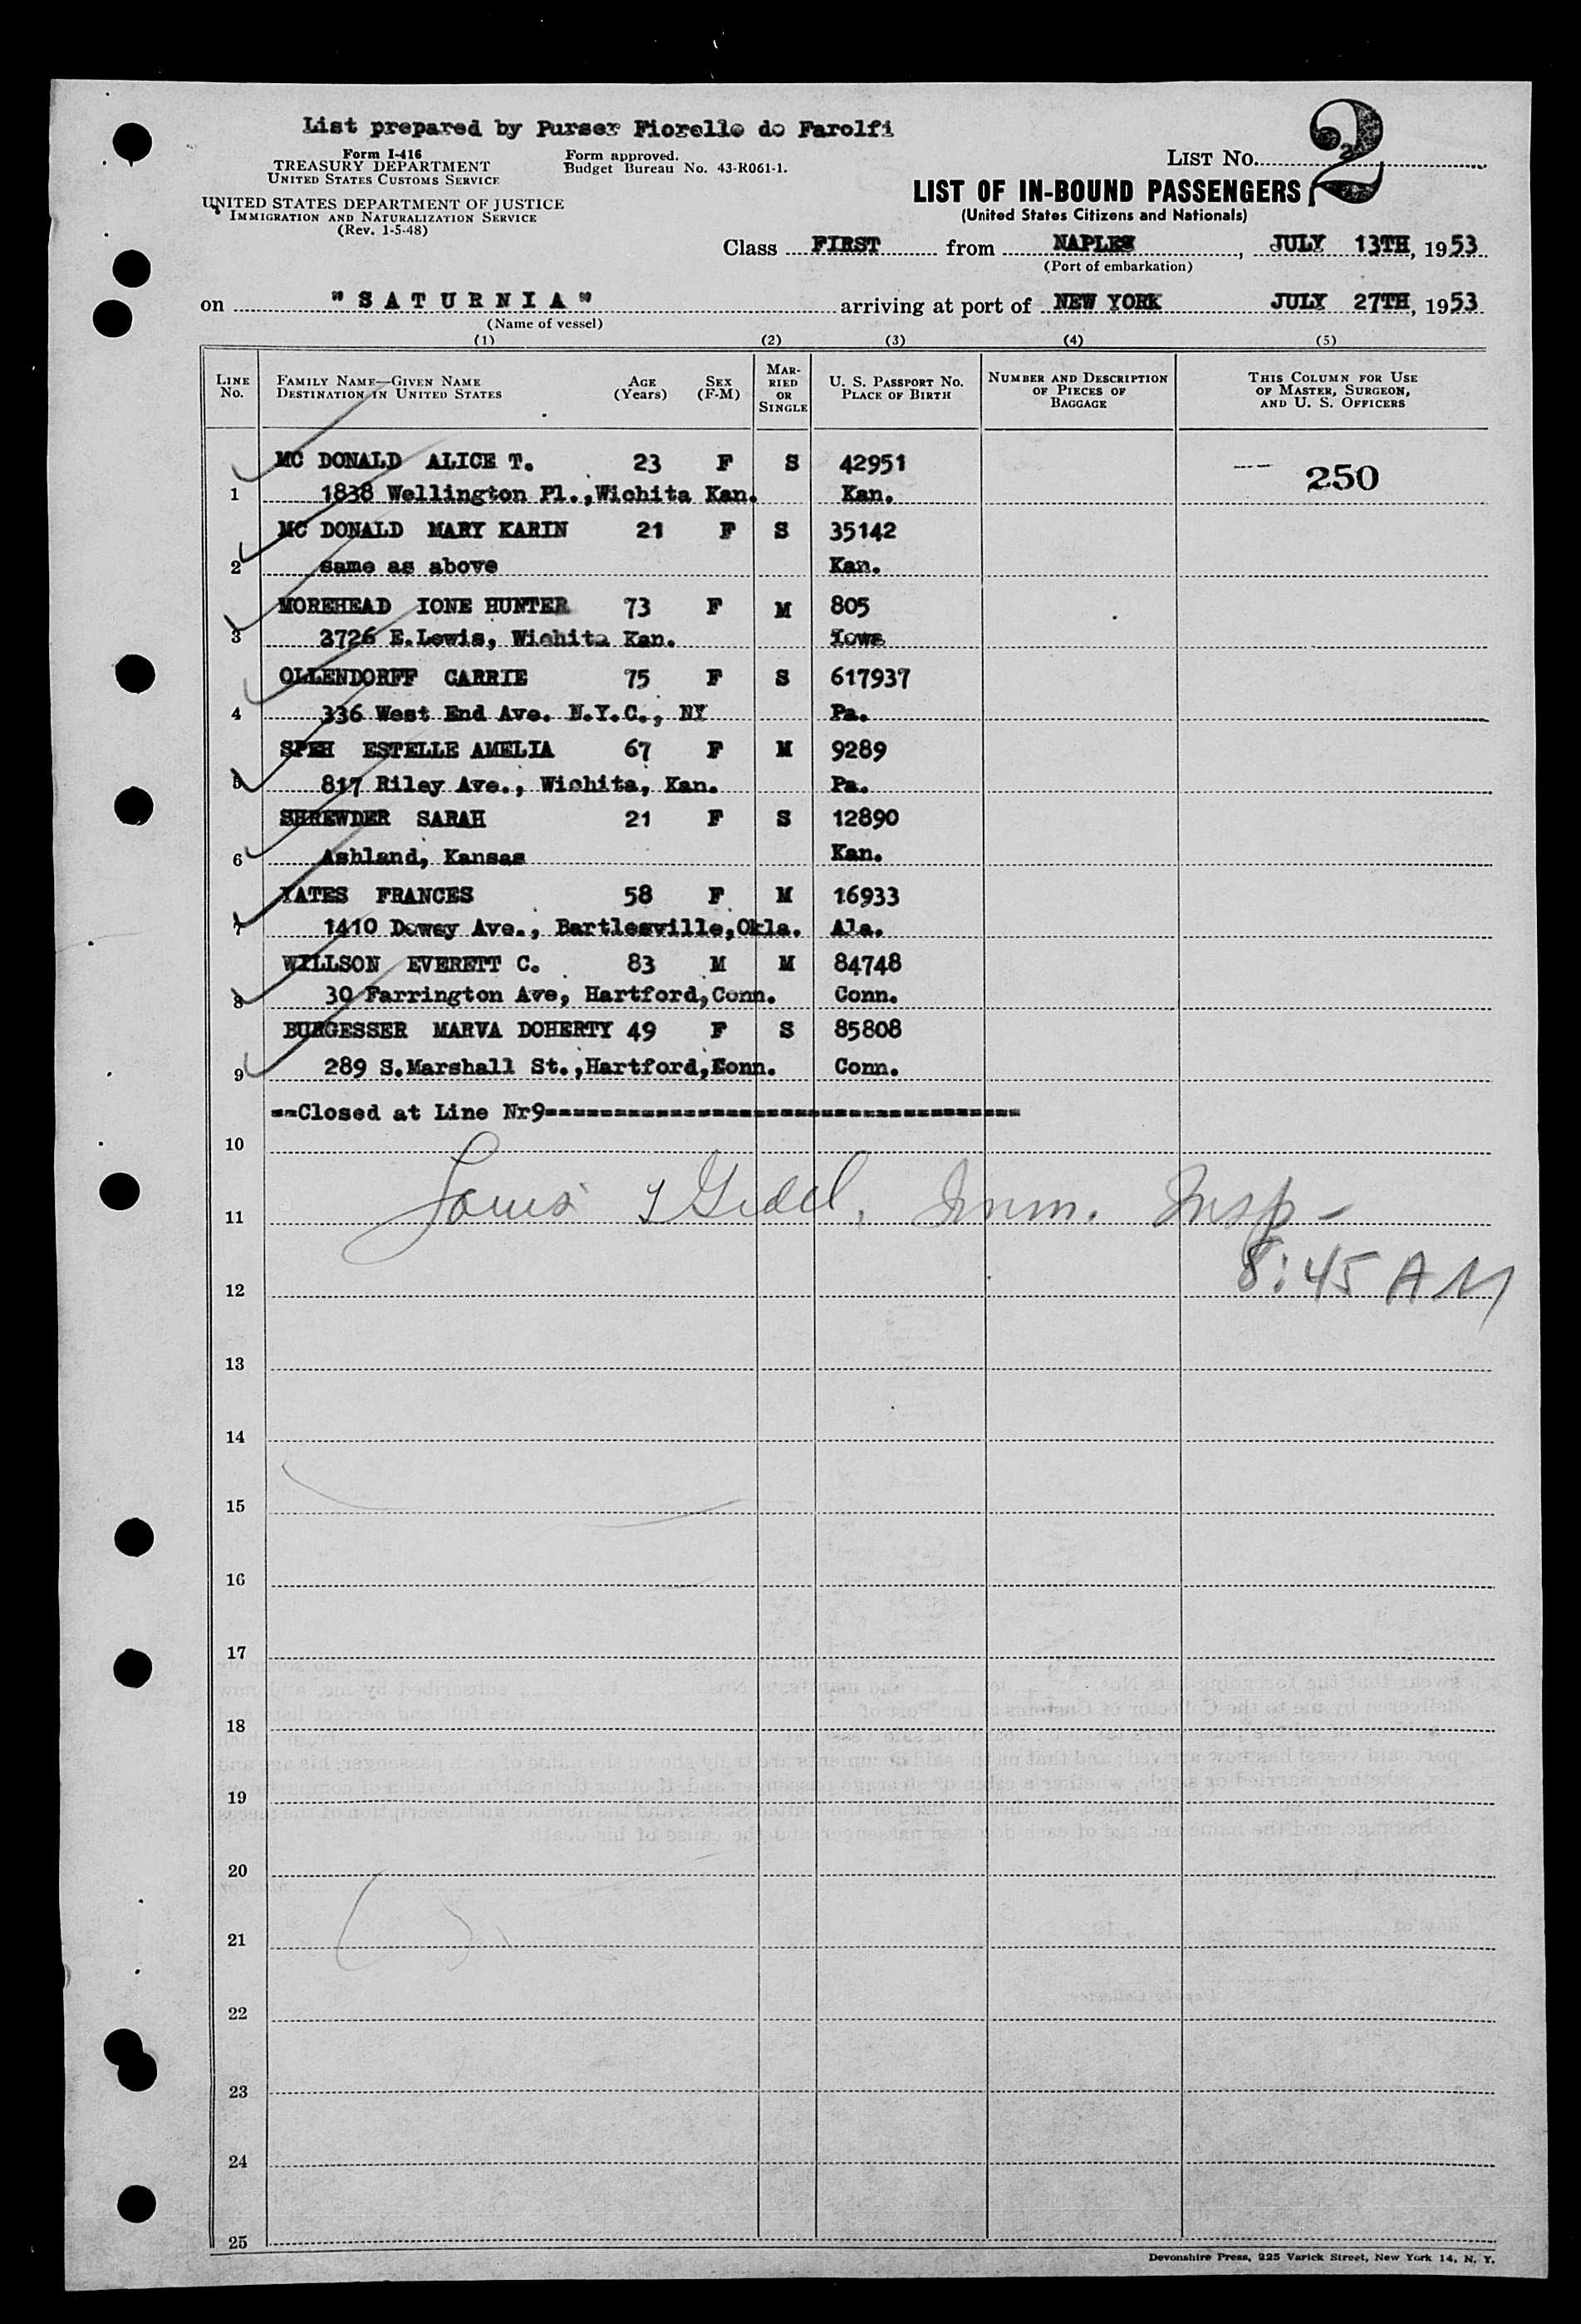 List prepared by Purser Fiorello de Farolfi
Form I-416
TREASURY DEPARTMENT
UNITED STATES CUSTOMS SERVICE
Form approved.
Budget Bureau No. 43-R061-1.
UNITED STATES DEPARTMENT OF JUSTICE
IMMIGRATION AND NATURALIZATION SERVICE
(Rev. 1-5-48)
LIST NO. 2
LIST OF IN-BOUND PASSENGERS
(United States Citizens and Nationals)
Class FIRST from NAPLES, JULY 13TH, 1953
(Port of embarkation)
on "SATURNIA" arriving at port of NEW YORK JULY 27TH, 1953
(Name of vessel)
(1) (2) (3) (4) (5)
LINE NO. FAMILY NAME—GIVEN NAME DESTINATION IN UNITED STATES AGE (YEARS) SEX (F-M) MARRIED OR SINGLE U. S. PASSPORT NO. PLACE OF BIRTH NUMBER AND DESCRIPTION OF PIECES OF BAGGAGE THIS COLUMN FOR USE OF MASTER, SURGEON, AND U. S. OFFICERS
MC DONALD ALICE T. 23 F S 42951 250
1 1838 Wellington Pl.,Wichita Kan. Kan.
MC DONALD MARY KARIN 21 F S 35142
2 same as above Kan.
MOREHEAD IONE HUNTER 73 F M 805
3 3726 E.Lewis, Wichita Kan. Iowa
OLLENDORFF CARRIE 75 F S 617937
4 336 West End Ave. N.Y.C., NY Pa.
SPEH ESTELLE AMELIA 67 F M 9289
5 817 Riley Ave., Wichita, Kan. Pa.
SHREWDER SARAH 21 F S 12890
6 Ashland, Kansas Kan.
YATES FRANCES 58 F M 16933
7 1410 Dewey Ave., Bartlesville,Okla. Ala.
WILLSON EVERETT C. 83 M M 84748
8 30 Farrington Ave, Hartford,Conn. Conn.
BURGESSER MARVA DOHERTY 49 F S 85808
9 289 S.Marshall St.,Hartford,Conn. Conn.
--Closed at Line Nr9-----------------------------------
10
11 Louis Imm. Insp-
8:45 AM
12
13
14
15
16
17
18
19
20
21
22
23
24
25
Devonshire Press, 225 Varick Street, New York 14, N. Y.